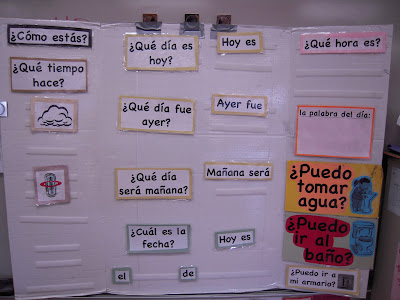 ¿Cómo estás?
¿Qué tiempo
hace?
¿Qué día es
hoy?
Hoy es
¿Qué día fue
ayer?
Ayer fue
¿Qué día
será mañana?
Mañana será
¿Cuál es la
fecha?
Hoy es
el
de
¿Qué hora es?
la palabra del día:
¿Puedo
tomar
agua?
¿Puedo
ir al
baño?
¿Puedo ir a
mi armario?